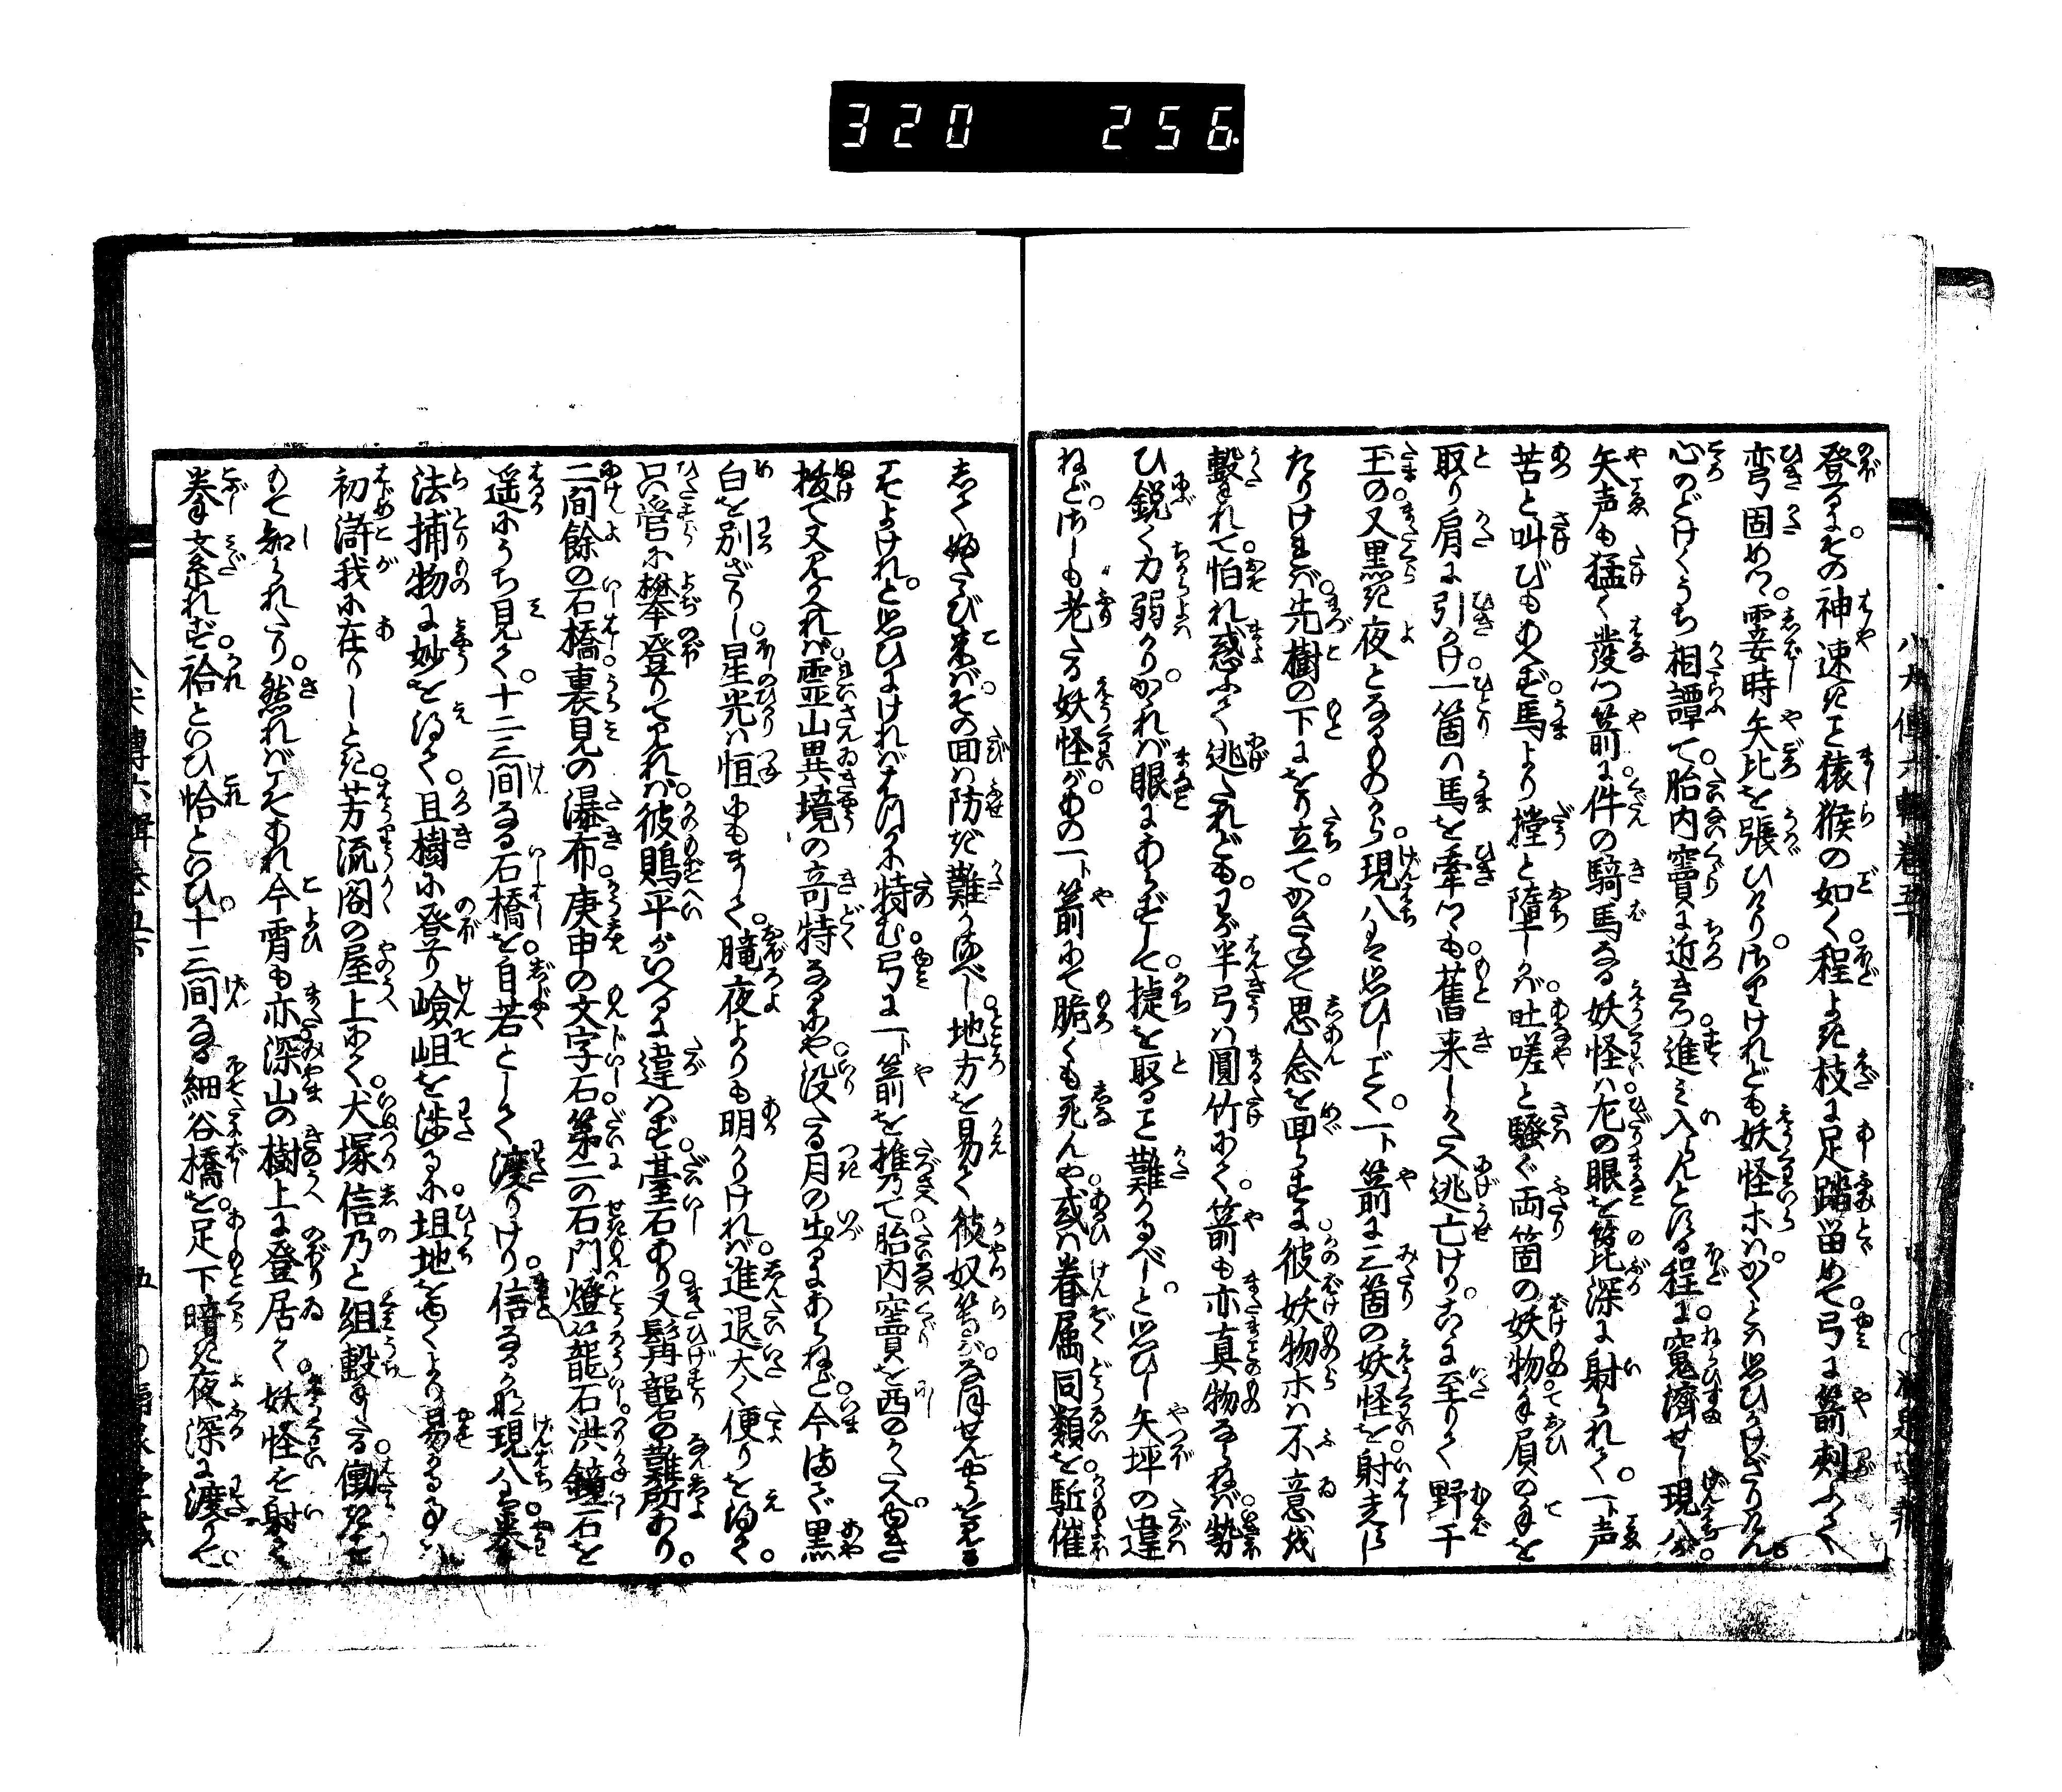 320 256
登るに。その神速きこと猿猴の如く。程よき枝に足踏留めて。弓に箭刺ふて
弯固めつ。霎時矢比を張ひけり。さりけれども妖怪ホハ。かくとハ思ひかけざりけん。
心のどけくうち相譚て。胎内竇に近きつ進み入らんとする程に。窺濟せし現八。
矢声も猛く發つ箭に。件の騎馬なる妖怪ハ。左の眼を篦深に射られて。一声
苦と叫びもあへず。馬より撲と墮しかバ。吐嗟と騒ぐ両箇の妖物。手屓の手を
取り肩に引かけ。一箇ハ馬を牽つゝも。舊来しかたへ逃亡けり。爰に至りて野干
玉の。又黒き夜となるものから。現八ハ思ひしごとく。一箭に三箇の妖怪を。射走らし
たりけれバ。先樹の下にをり立て。かさねて思念を回らすに。彼妖物ホハ不意を
撃れて。怕れ惑ふて逃たれども。わが半弓ハ圓竹にて。箭も亦真物ならねバ。勢
ひ鋭く力弱かり。かゝれバ眼にあらずして。捷を取ること難かるべし。と思ひし矢坪の違
ねど。さしも老たる妖怪が。あの一箭にて脆くも死んや。或ハ眷属同類を駈催
して。ふたゝび来バ。その面ハ防ぎ難かるべし。地方を易て彼奴等が。為んやうを見る
こそよけれ。と思ひにけれバはや特む。弓に一箭を推乃て。胎内竇を西のかたへ。ゆき
抜て又見かへれバ。霊山異境の奇特なるにや。没たる月の出るにあらねど。今まで黒
白を別ざりし。星光ハ恒にもまして。朧夜よりも明かりけれバ。進退太く便りを得て。
只管に攀登りて見れバ。彼鵙平がいへるに違はず。臺石あり。又髯磨の難所あり。
二間餘の石橋。裏見の瀑布。庚申の文字石。第二の石門。燈籠石。洪鐘石を
遥にうち見て。十二三間なる石橋を。自若として渡りけり。信なるかな現八ハ。拳
法捕物に妙を得て。且樹に登り嶮岨を渉るに。坦地をゆくより易かる事ハ。
初滸我に在りしとき。芳流閣の屋上にて。犬塚信乃と組撃たる。働きにて
もて知られたり。然れバこそあれ今宵も亦。深山の樹上に登居て。妖怪を射て
拳紊れず。袷といひ恰といひ。十三間なる細谷橋を。足下暗き夜深に渡りて。